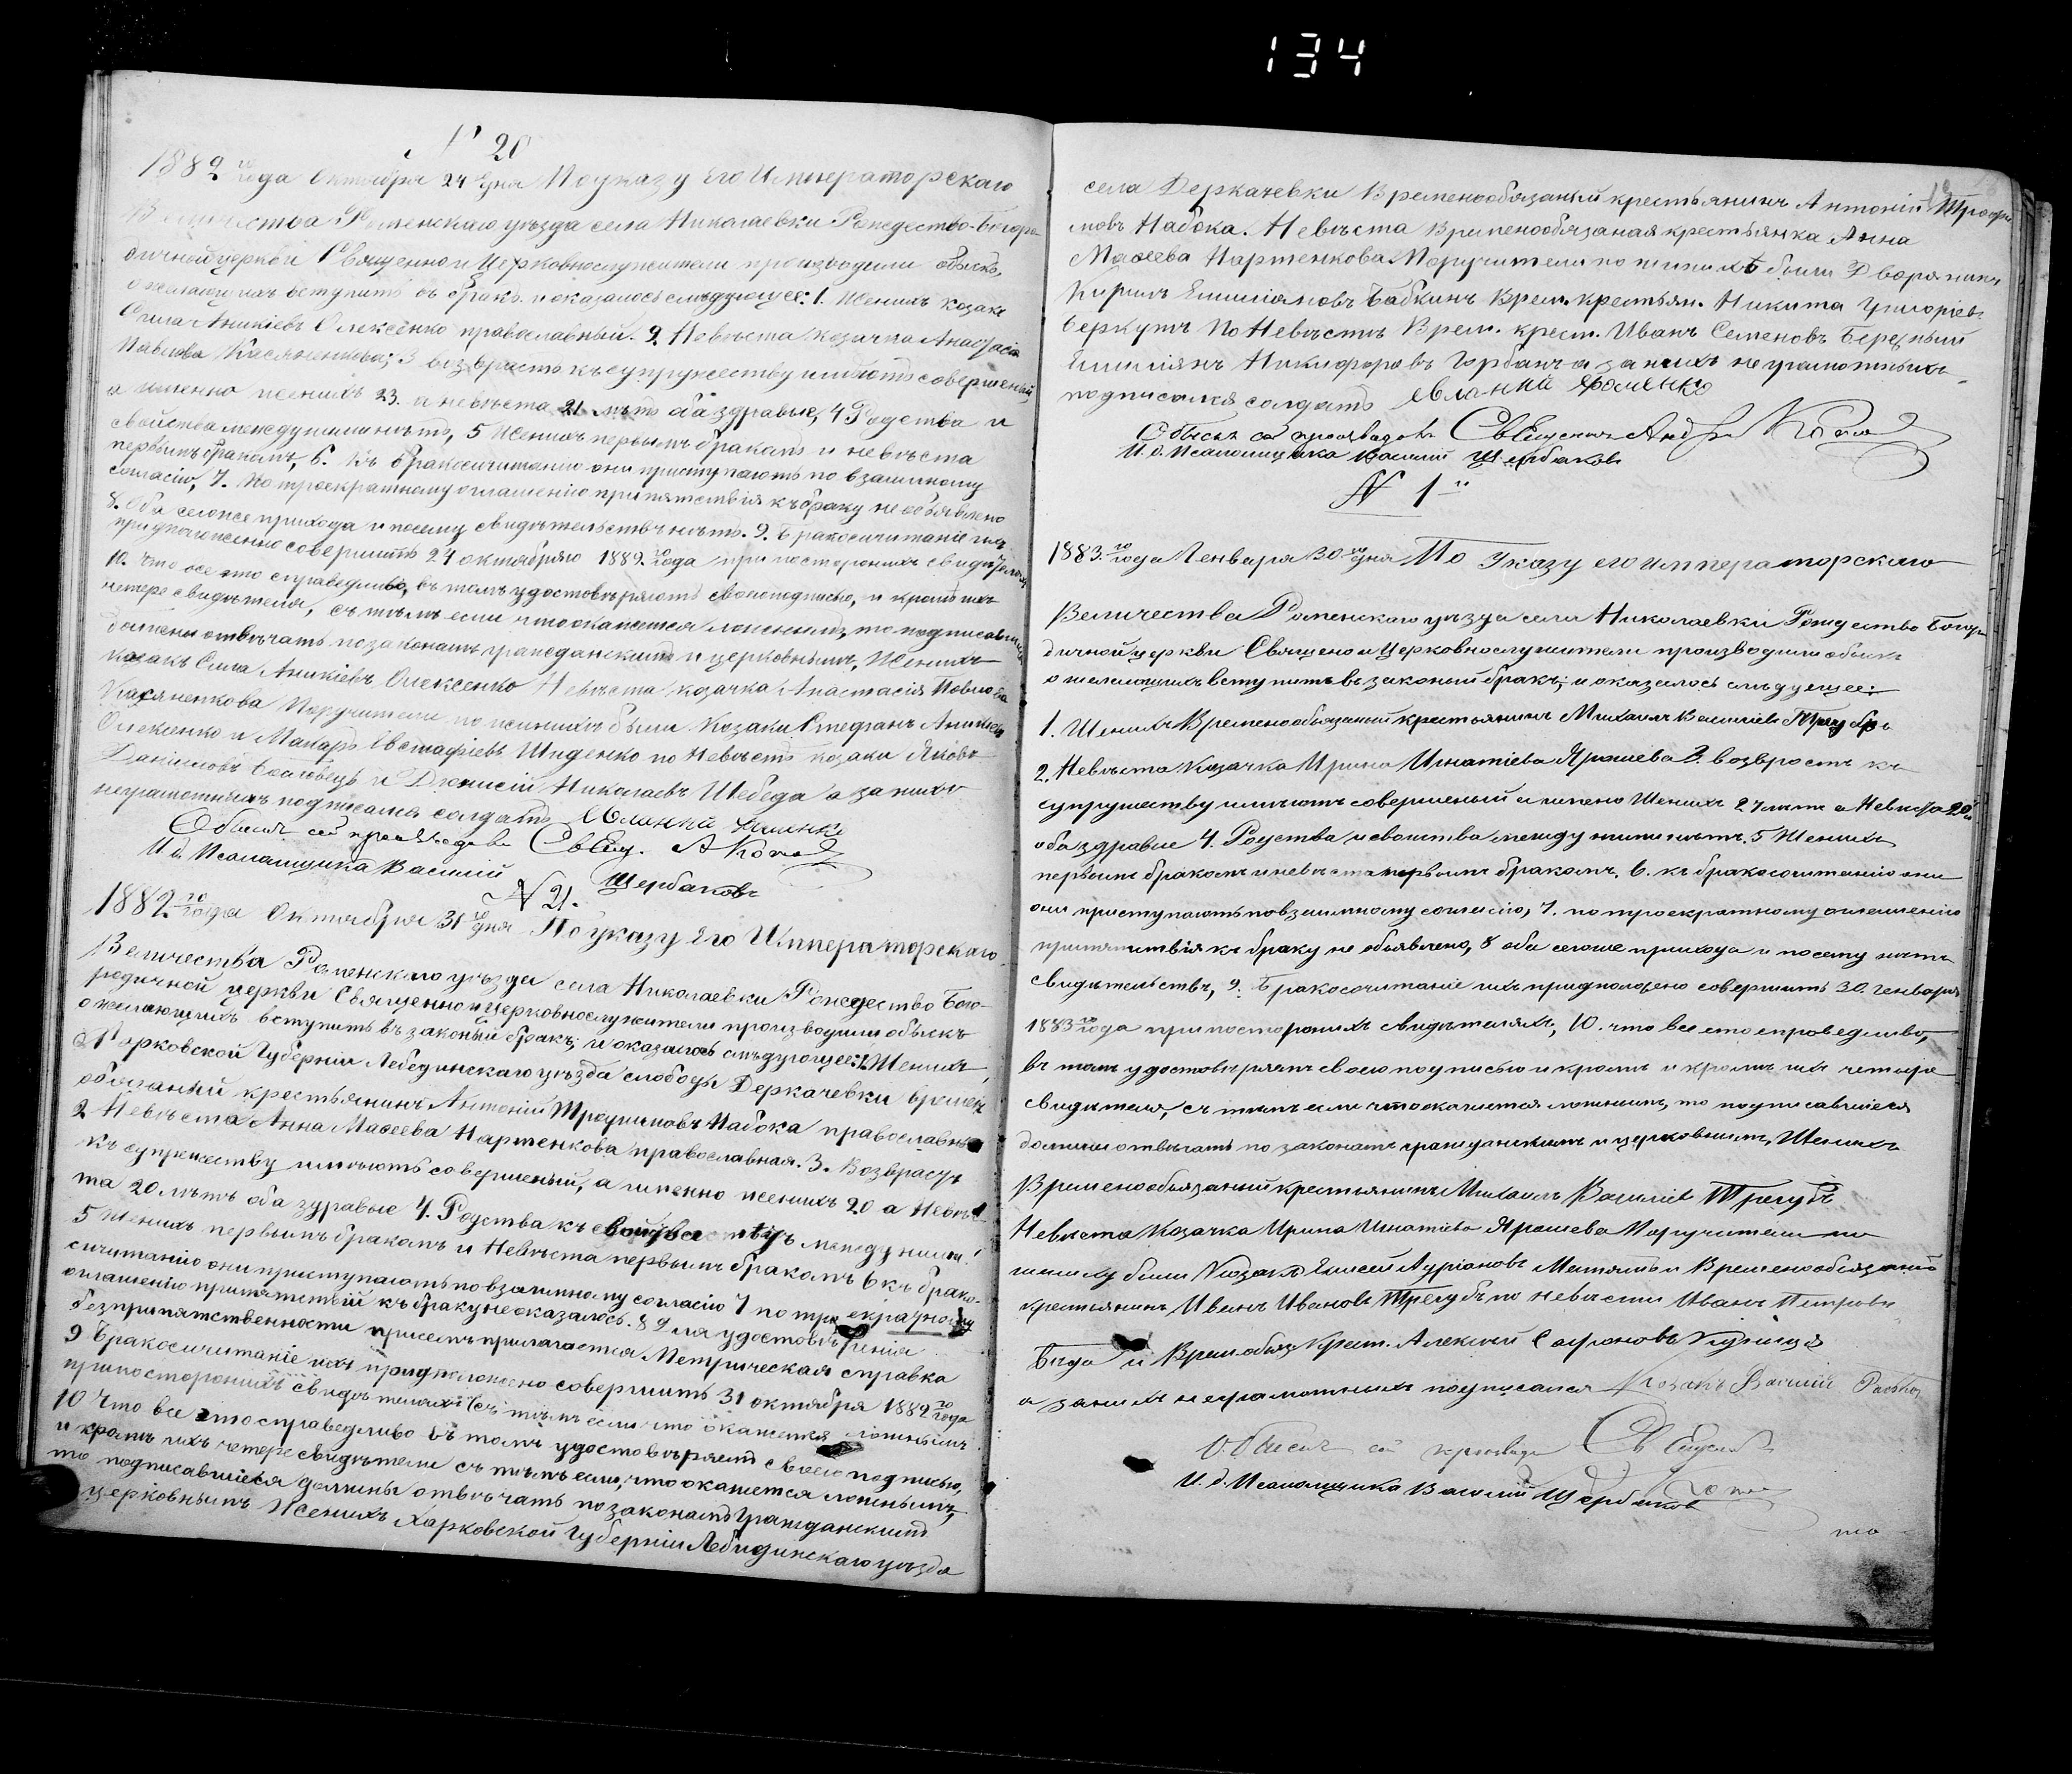 134
№ 20
1882 го года Октября 24 го дня По указу Его Императорскаго
Величества Роменскаго уѣзда села Николаевки Рождество-Богоро
дичной церкви Священно и Церковнослужители производили обыскъ
о желающихъ вступить въ бракъ и оказалось слѣдующее: 1. Женихъ козакъ
Сила Аникіевъ Олексенко православный. 2. Невѣста козачка Анастасія
Павлова Касяненкова; 3 возврастъ къ супружеству имѣютъ совершеный
а именно женихъ 23. а невѣста 21 лѣтъ оба здравые, 4 Родства и
свойства между ними нѣтъ, 5 Женихъ первымъ бракомъ и невѣста
первымъ бракомъ, 6. Къ бракосичитанию они приступаютъ по взаимному
согласію, 7. По троекратному оглашенію припятствія къ браку не объявлено
8. Оба сегоже прихода и посему свидѣтельствъ нѣтъ. 9. Бракосичитаніе ихъ
придположенно совершить 24 октября 1882 го года при постороннихъ свидѣтеляхъ
10. что все это справедливо, въ томъ удостовѣряютъ своею подписью, и кромѣ ихъ
четере свидѣтеля, съ тѣмъ если что окажется ложнымъ, то подписавшіеся
должны отвѣчать по законамъ гражданскимъ и церковнымъ, Женихъ
козакъ Сила Аникіевъ Олексенко Невѣста козачка Анастасія Павлова
Касяненкова Поручители по женихѣ были Козаки Стефанъ Аникіевъ
Олексенко и Макаръ Евстафіевъ Шиденко по Невѣстѣ козаки Яковъ
Даніиловъ и Діонисій Николаевъ Шебеда а за нихъ
неграмотныхъ подписался солдатъ
Обыскъ сей производилъ Свящ. А
И. д. Псаломщика Василій Щербаковъ
№ 21.
1882 го года Октября 31 го дня По указу Его Императорскаго
Величества Роменскаго уѣзда села Николаевки Рождество Бого-
родичной церкви Священно и церковнослужители производили обыскъ
о желающихъ вступить въ законый бракъ; и оказалось слѣдующее: 1. Женихъ
Харковской Губерніи Лебединскаго уѣзда слободы Деркачевки времен
обязаный крестьянинъ Антоній Трофимовъ Набока православный
2 Невѣста Анна Мавеева Нартенкова православная. 3. Возврастъ
къ супружеству имѣютъ совершеный, а именно женихъ 20 а Невѣс
та 20 лѣтъ оба здравые 4. Родства къ между ними
5 Женихъ первымъ бракомъ и Невѣста первымъ бракомъ 6 къ брако-
сичитанію они приступаютъ по взаимному согласію 7 по троекратному
оглашенію припятствій къ браку не оказалось. 8 Для удостовѣренія
безпрепятственности присемъ прилагается Метрическая справка
9 Бракосичитаніе ихъ придположено совершить 31 октября 1882 го года
при постороннихъ свидѣтеляхъ съ тѣмъ если что окажется ложнымъ
10 Что все это справедливо въ томъ удостовѣряютъ своею подписью,
и кромѣ ихъ четере свидѣтели съ тѣмъ если, что окажется ложнымъ,
то подписавшіеся должны отвѣчать по законамъ Гражданскимъ
церковнымъ Женихъ Харковской Губерніи Лебидинскаго уѣзда
села Деркачевки Временообязаный крестьянинъ Антоній Трофи
мовъ Набока. Невѣста Временообязаная крестьянка Анна
Мавеева Нартенкова. Поручители по женихѣ были Дворянинъ
Кирилъ Емиліановъ Бабкинъ Врем. крестьян. Никита Григоріевъ
Беркутъ по Невѣстѣ Врем. крест. Иванъ Семеновъ Бережный
Емиліянъ Никифоровъ Горбанъ а за нихъ неграмотныхъ
подписался солдатъ Фоменко
Обыскъ сей производилъ Священникъ Андрей
И. д. Псаломщика Василій Щербаковъ
№ 1 й
1883 го года Генваря 30 го дня По Указу его императорскаго
Величества Роменскаго уѣзда села Николаевки Рождество Богоро
дичной церкви Священо и Церковнослужители производили обыскъ
о желающихъ вступить въ законый бракъ; и оказалось слѣдующее:
1. Женихъ Временообязаный крестьянинъ Михаилъ Василіевъ Трегубъ
2. Невѣста Козачка Ирина Игнатіева Ярошева 3. возврастъ къ
супружеству имѣютъ совершеный а имено Женихъ 27 лѣтъ а Невѣста 20
оба здравые 4. Родства и своиства между ними нѣтъ. 5 Женихъ
первымъ бракомъ и невѣста первымъ бракомъ. 6. къ бракосочитанію они
они приступаютъ по взаимному согласію, 7. по троекратному оглашенію
припятствія къ браку не объявлено, 8 оба сегоже прихода и посему нѣтъ
свидѣтельствъ, 9. Бракосочитаніе ихъ придположено совершить 30. генваря
1883 го года при посторонихъ свидѣтеляхъ, 10. что все ето справедливо,
въ томъ удостовѣряютъ своею подписью и кромѣ и кромѣ ихъ четыре
свидѣтеля, съ тѣмъ если что окажется ложнымъ, то подписавшіеся
должны отвѣчать по законамъ гражданскимъ и церковнымъ, Женихъ
Временообязаный крестьянинъ Михаилъ Василіевъ Трегубъ
Невѣста Козачка Ирина Игнатіева Ярошева Поручители по
жениху были Козакъ Елисей и Временообязаный
крестьянинъ Иванъ Ивановъ Трегубъ по невѣсти Иванъ Петровъ
Бида и Времобяз. Крест. Алексій Сафроновъ
а за нихъ неграмотныхъ подписался Козакъ Василій
Обыскъ сей производилъ Священникъ
И. д. Псаломщика Василій Щербаковъ
то